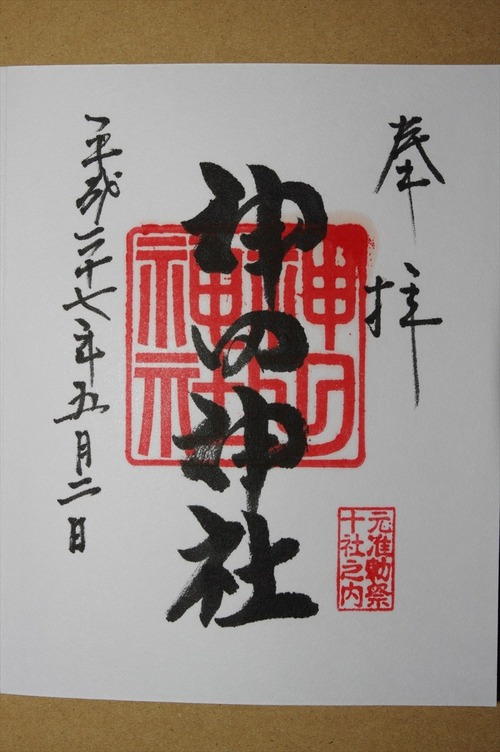 奉拝
神田神社
元准勅祭
十社之内
平成二十七年五月二日